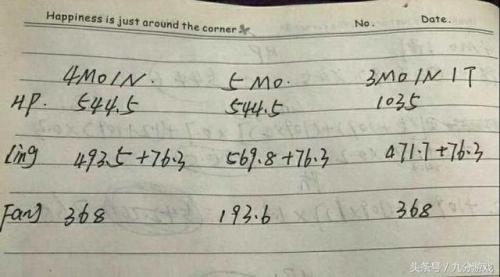 Happiness is just around the corner No. Date.
4MOIN. 5 MO. 3MOIN IT
HP. 544.5 544.5 1035
ling 493.5+76.3 569.8+76.3 471.7+76.3
Fang 368 193.6 368
头条号／九分游戏